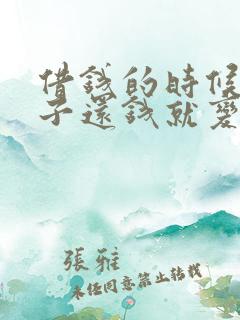 借錢的時候
子還錢就變
張雅
未經同意禁止轉載